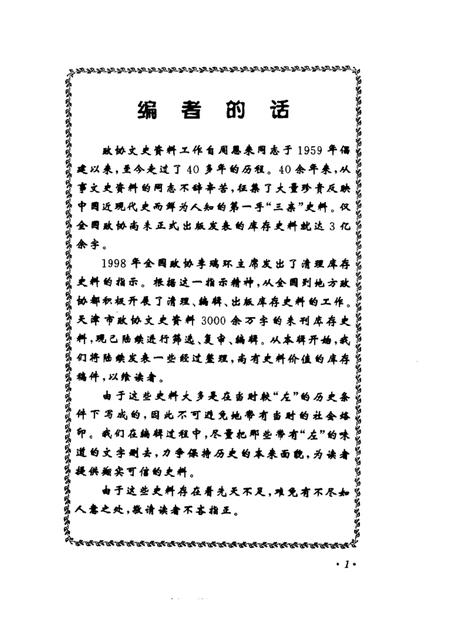 编者的话
政协文史资料工作自周恩来同志于1959年倡
建以来,至今走过了40多年的历程。40余年来,从
事文史资料的同志不辞辛苦,征集了大量珍贵反映
中国近现代史而鲜为人知的第一手“三亲”史料。仅
全国政协尚未正式出版发表的库存史料就达3亿
余字。
1998年全国政协李瑞环主席发出了清理库存
史料的指示。根据这一指示精神,从全国到地方政
协都积极开展了清理、编辑、出版库存史料的工作。
天津市政协文史资料3000余万字的未刊库存史
料,现已陆续进行筛选、复审、编辑。从本辑开始,我
们将陆续发表一些经过整理,尚有史料价值的库存
稿件,以飨读者。
由于这些史料大多是在当时较“左”的历史条
件下写成的,因此不可避免地带有当时的社会烙
印。我们在编辑过程中,尽量把那些带有“左”的味
道的文字删去,力争保持历史的本来面貌,为读者
提供翔实可信的史料。
由于这些史料存在着先天不足,难免有不尽如
人意之处,敬请读者不吝指正。
·1·